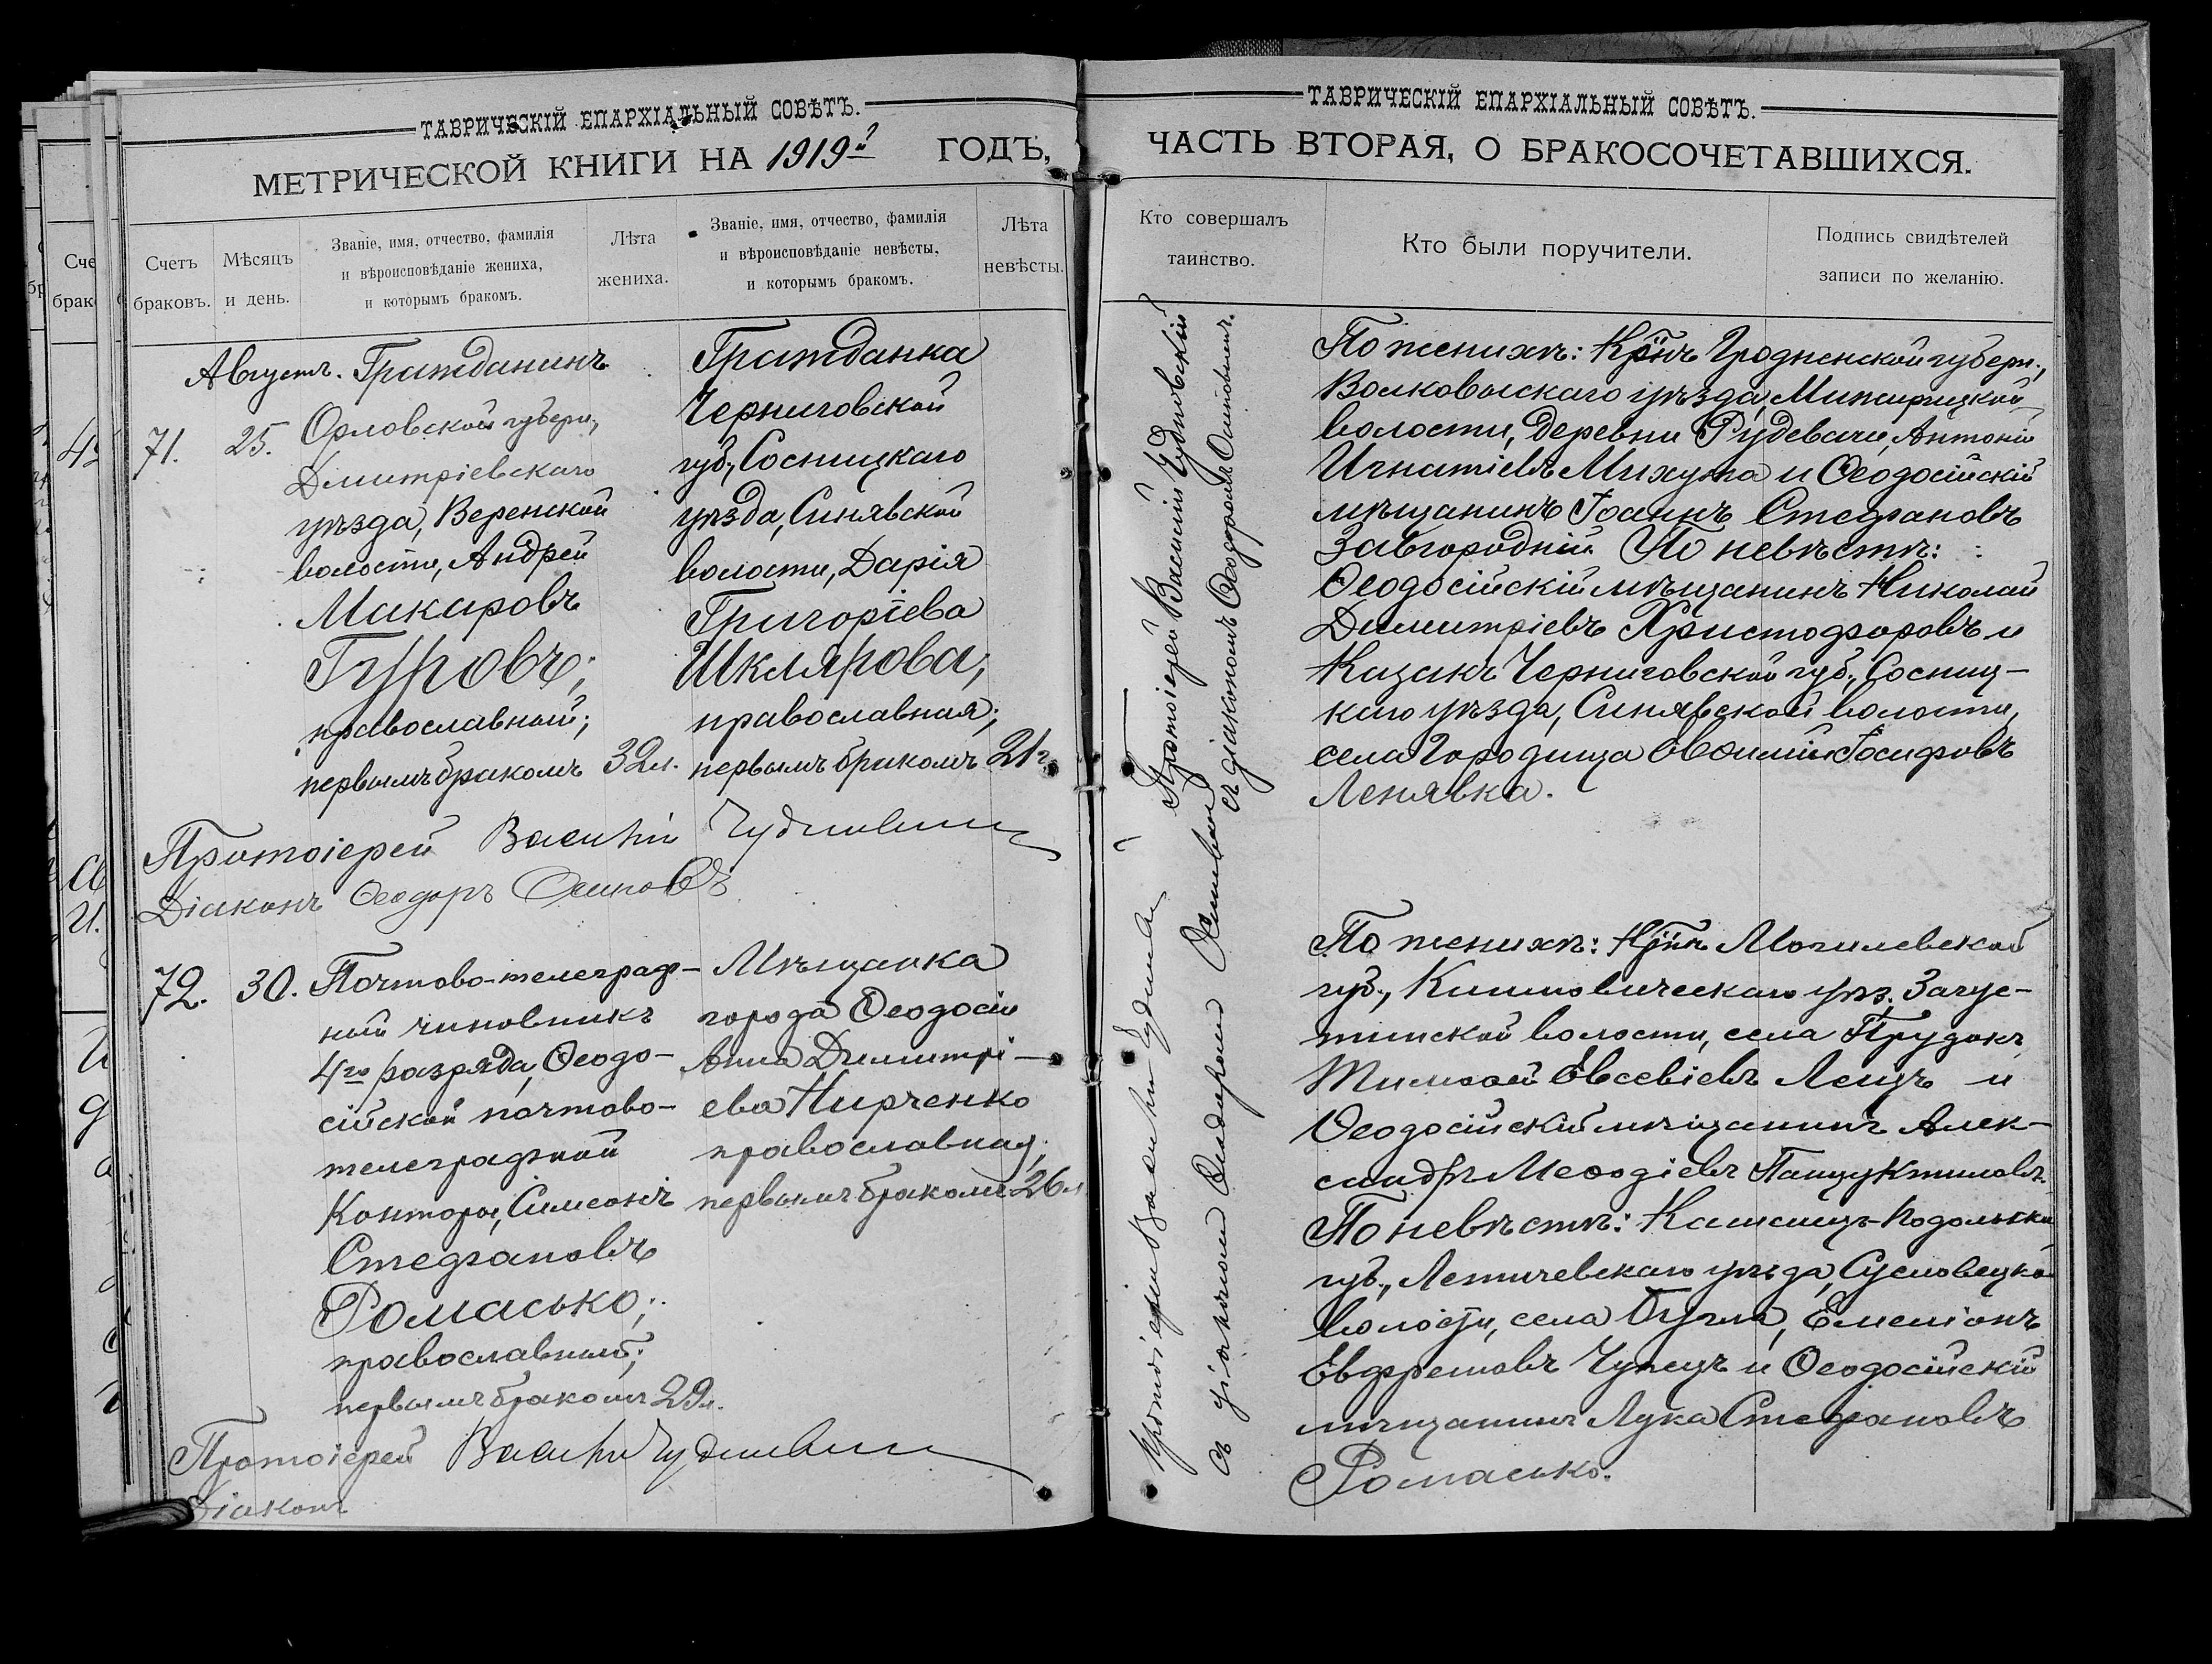 ТАВРИЧЕСКІЙ ЕПАРХІАЛЬНЫЙ СОВѢТЪ.
МЕТРИЧЕСКОЙ КНИГИ НА 1919й ГОДЪ,
Счетъ браковъ.
Мѣсяцъ и день.
Званіе, имя, отчество, фамилія
и вѣроисповѣданіе жениха,
и которымъ бракомъ.
Лѣта
жениха.
Званіе, имя, отчество, фамилія
и вѣроисповѣданіе невѣсты,
и которымъ бракомъ.
Лѣта
невѣсты.
Августъ.
71.
25.
Гражданинъ
Орловской губерн.,
Дмитріевскаго
уѣзда, Веренской
волости, Андрей
Макаровъ
Гуровъ;
православный;
первымъ бракомъ
32л.
Гражданка
Черниговской
губ., Сосницкаго
уѣзда, Синявской
волости, Дарія
Григоріева
Шклярова;
православная;
первымъ бракомъ
21г.
Протоіерей Василій
Діаконъ Ѳеодоръ Осиповъ
72.
30.
Почтово-телеграф-
ный чиновникъ
4го разряда, Ѳеодо-
сійской почтово-
телеграфной
Конторы, Симеонъ
Стефановъ
Ромасько;
православный;
первымъ бракомъ
29л.
Мѣщанка
города Ѳеодосіи
Анна Димитрі-
ева Кирченко
православная,
первымъ бракомъ
26л
Протоіерей Василій
Діаконъ
ТАВРИЧЕСКІЙ ЕПАРХІАЛЬНЫЙ СОВѢТЪ.
ЧАСТЬ ВТОРАЯ, О БРАКОСОЧЕТАВШИХСЯ.
Кто совершалъ
таинство.
Кто были поручители.
Подпись свидѣтелей
записи по желанію.
Протоіерей Василій Чудновскій
съ діакономъ Ѳеодоромъ Осиповымъ.
По женихѣ: Крнъ Гродненской губерн.,
Волковыскаго уѣзда, Мижирицкой
волости, деревни Рудевичи, Антоній
Игнатіевъ Михута и Ѳеодосійскій
мѣщанинъ Іоаннъ Стефановъ
Завгородній. По невѣстѣ:
Ѳеодосійскій мѣщанинъ Николай
Димитріевъ Христофоровъ и
Казакъ Черниговской губ., Сосниц-
каго уѣзда, Синявской волости,
села Городища Евѳимій Іосифовъ
Ленявка.
Протоіерей Василій
съ діакономъ
По женихѣ: Крнъ Могилевской
губ., уѣз. Загус-
тинской волости, села Прудокъ
Тимоѳей Евсевіевъ Ленцъ и
Ѳеодосійскій мѣщанинъ Алек-
сандръ Меѳодіевъ
По невѣстѣ: Каменецъ-Подольской
губ., Летичевскаго уѣзда, Сусловецкой
волости, села Буглы, Емеліанъ
Евфремовъ Чупецъ и Ѳеодосійскій
мѣщанинъ Лука Стефановъ
Ромасько.